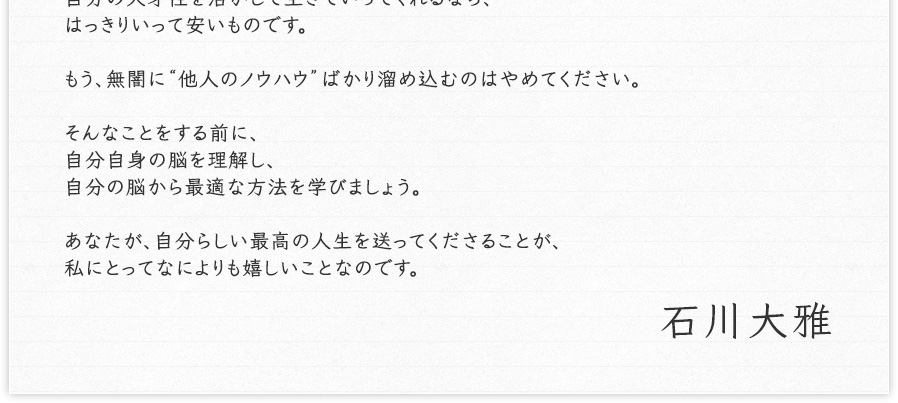 自分の天才性を活かして生きていってくれるなら、
はっきりいって安いものです。
もう、無闇に“他人のノウハウ”ばかり溜め込むのはやめてください。
そんなことをする前に、
自分自身の脳を理解し、
自分の脳から最適な方法を学びましょう。
あなたが、自分らしい最高の人生を送ってくださることが、
私にとってなによりも嬉しいことなのです。
石川大雅